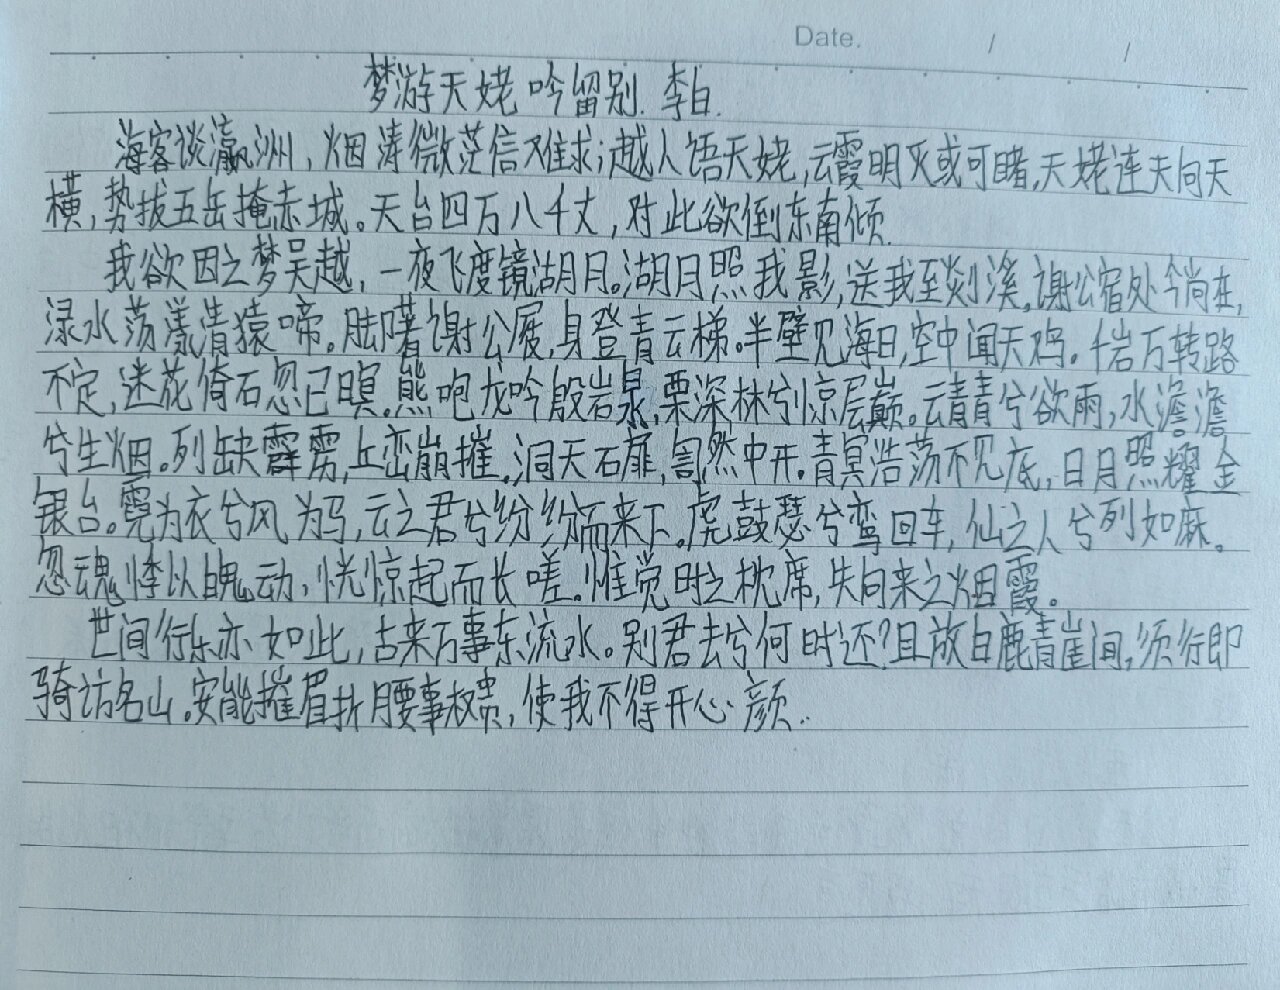 Date. / /
梦游天姥吟留别. 李白.
海客谈瀛洲,烟涛微茫信难求;越人语天姥,云霞明灭或可睹,天姥连天向天
横,势拔五岳掩赤城。天台四万八千丈,对此欲倒东南倾.
我欲因之梦吴越,一夜飞度镜湖月。湖月照我影,送我至剡溪,谢公宿处今尚在,
渌水荡漾清猿啼。脚著谢公屐,身登青云梯。半壁见海日,空中闻天鸡。千岩万转路
不定,迷花倚石忽已暝。熊咆龙吟殷岩泉,栗深林兮惊层巅。云青青兮欲雨,水澹澹
兮生烟。列缺霹雳,丘峦崩摧。洞天石扉,訇然中开。青冥浩荡不见底,日月照耀金
银台。霓为衣兮风为马,云之君兮纷纷而来下。虎鼓瑟兮鸾回车,仙之人兮列如麻。
忽魂悸以魄动,恍惊起而长嗟。惟觉时之枕席,失向来之烟霞。
世间行乐亦如此,古来万事东流水。别君去兮何时还?且放白鹿青崖间,须行即
骑访名山。安能摧眉折腰事权贵,使我不得开心颜..